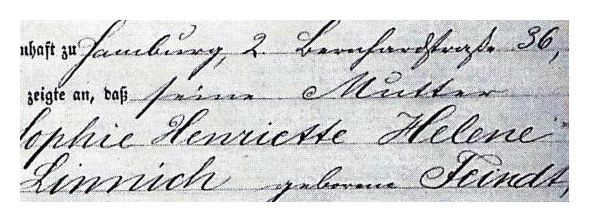 nhaft zu Hamburg, 2. Bernhardstraße 36,
zeigte an, daß seine Mutter
Sophie Henriette Helene
Linnich geborene Feindt,